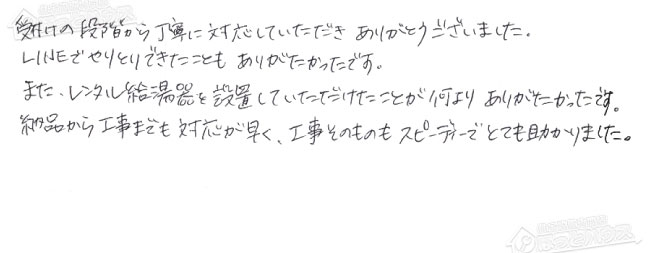 受付けの段階から丁寧に対応していただき ありがとうございました。
LINEでやりとりできたことも ありがたかったです。
また、レンタル給湯器を設置していただけたことが何より ありがたかったです。
納品から工事までも対応が早く、工事そのものもスピーディーでとても助かりました。